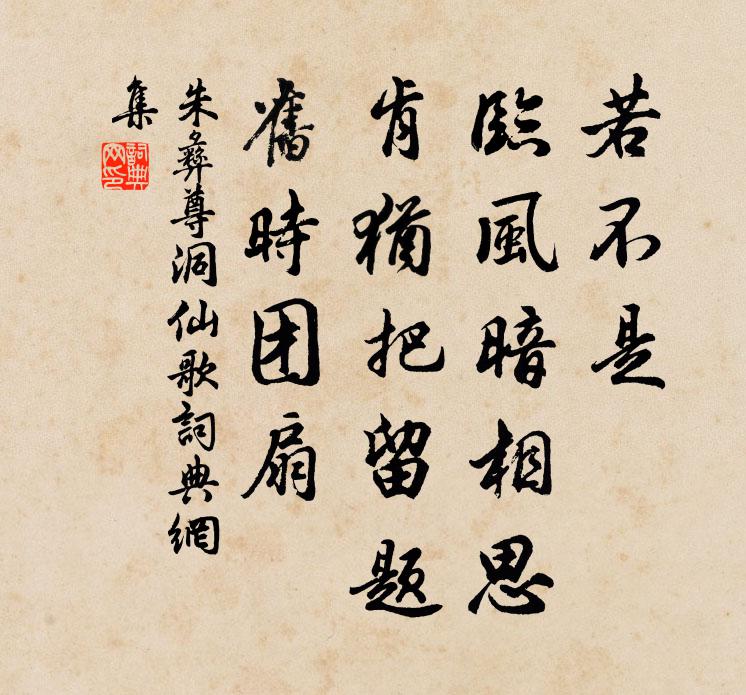 若不是
臨風暗相思
肯猶把留題
舊時团扇
朱彝尊洞仙歌詞典網
集
詞典
网印